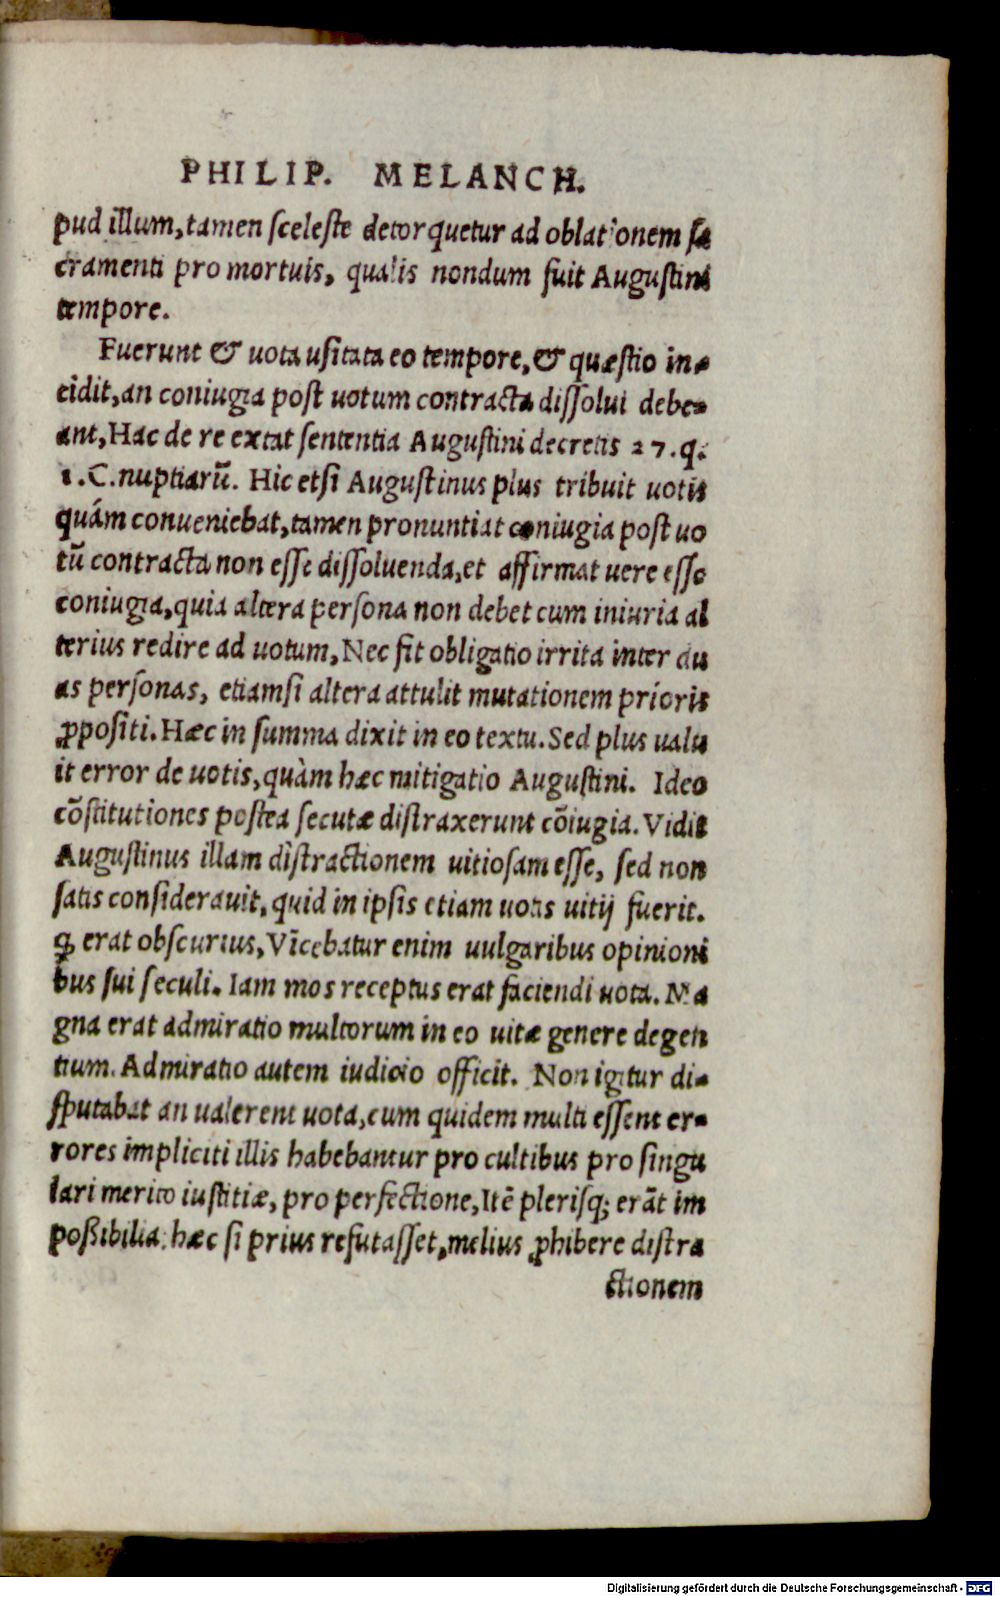 PHILIP. MELANCH.
pud illum, tamen sceleste detorquetur ad oblationem sa
cramenti pro mortuis, qualis nondum fuit Augustini
tempore.
Fuerunt & uota usitata eo tempore, & quæstio in-
cidit, an coniugia post uotum contracta dissolui debe-
ant, Hac de re extat sententia Augustini decretis 27. q.
1. C. nuptiarũ. Hic etsi Augustinus plus tribuit uotis
quám conueniebat, tamen pronuntiat coniugia post uo
tũ contracta non esse dissoluenda, et affirmat uere esse
coniugia, quia altera persona non debet cum iniuria al
terius redire ad uotum, Nec fit obligatio irrita inter du
as personas, etiamsi altera attulit mutationem prioris
ꝓpositi. Hæc in summa dixit in eo textu. Sed plus ualu
it error de uotis, quàm hæc mitigatio Augustini. Ideo
cõstitutiones postea secutæ distraxerunt cõiugia. Vidit
Augustinus illam distractionem uitiosam esse, sed non
satis considerauit, quid in ipsis etiam uotis uitij fuerit.
ꝙ erat obscurius, Vĩcebatur enim uulgaribus opinioni
bus sui seculi. Iam mos receptus erat faciendi uota. Ma
gna erat admiratio multorum in eo uitæ genere degen
tium. Admiratio autem iudicio officit. Non igitur di-
sputabat an ualerent uota, cum quidem multi essent er-
rores impliciti illis habebantur pro cultibus pro singu
lari merito iustitiæ, pro perfectione, Itẽ plerisq; erãt im
poßibilia: hæc si prius refutasset, melius ꝓhibere distra
ctionem
Digitalisierung gefördert durch die Deutsche Forschungsgemeinschaft - DFG